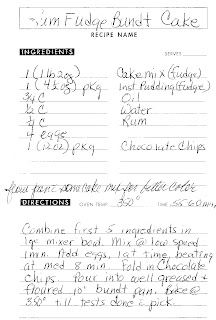 Rum Fudge Bundt Cake
RECIPE NAME
INGREDIENTS
SERVES
1 (1 lb 2oz) Cake mix (fudge)
1 (4 oz) pkg Inst Pudding (fudge)
Oil
Water
Rum
4 eggs
1 (12oz) pkg Chocolate Chips
flour pan c some cake mix for better color
DIRECTIONS OVEN TEMP. 350° TIME 55-60 min.
Combine first 5 ingredients in
lge mixer bowl. Mix @ low speed
1 min. Add eggs, 1 at time, beating
at med 8 min. Fold in Chocolate
Chips. Pour into well greased &
floured 10" bundt pan. Bake @
350° till tests done c pick.